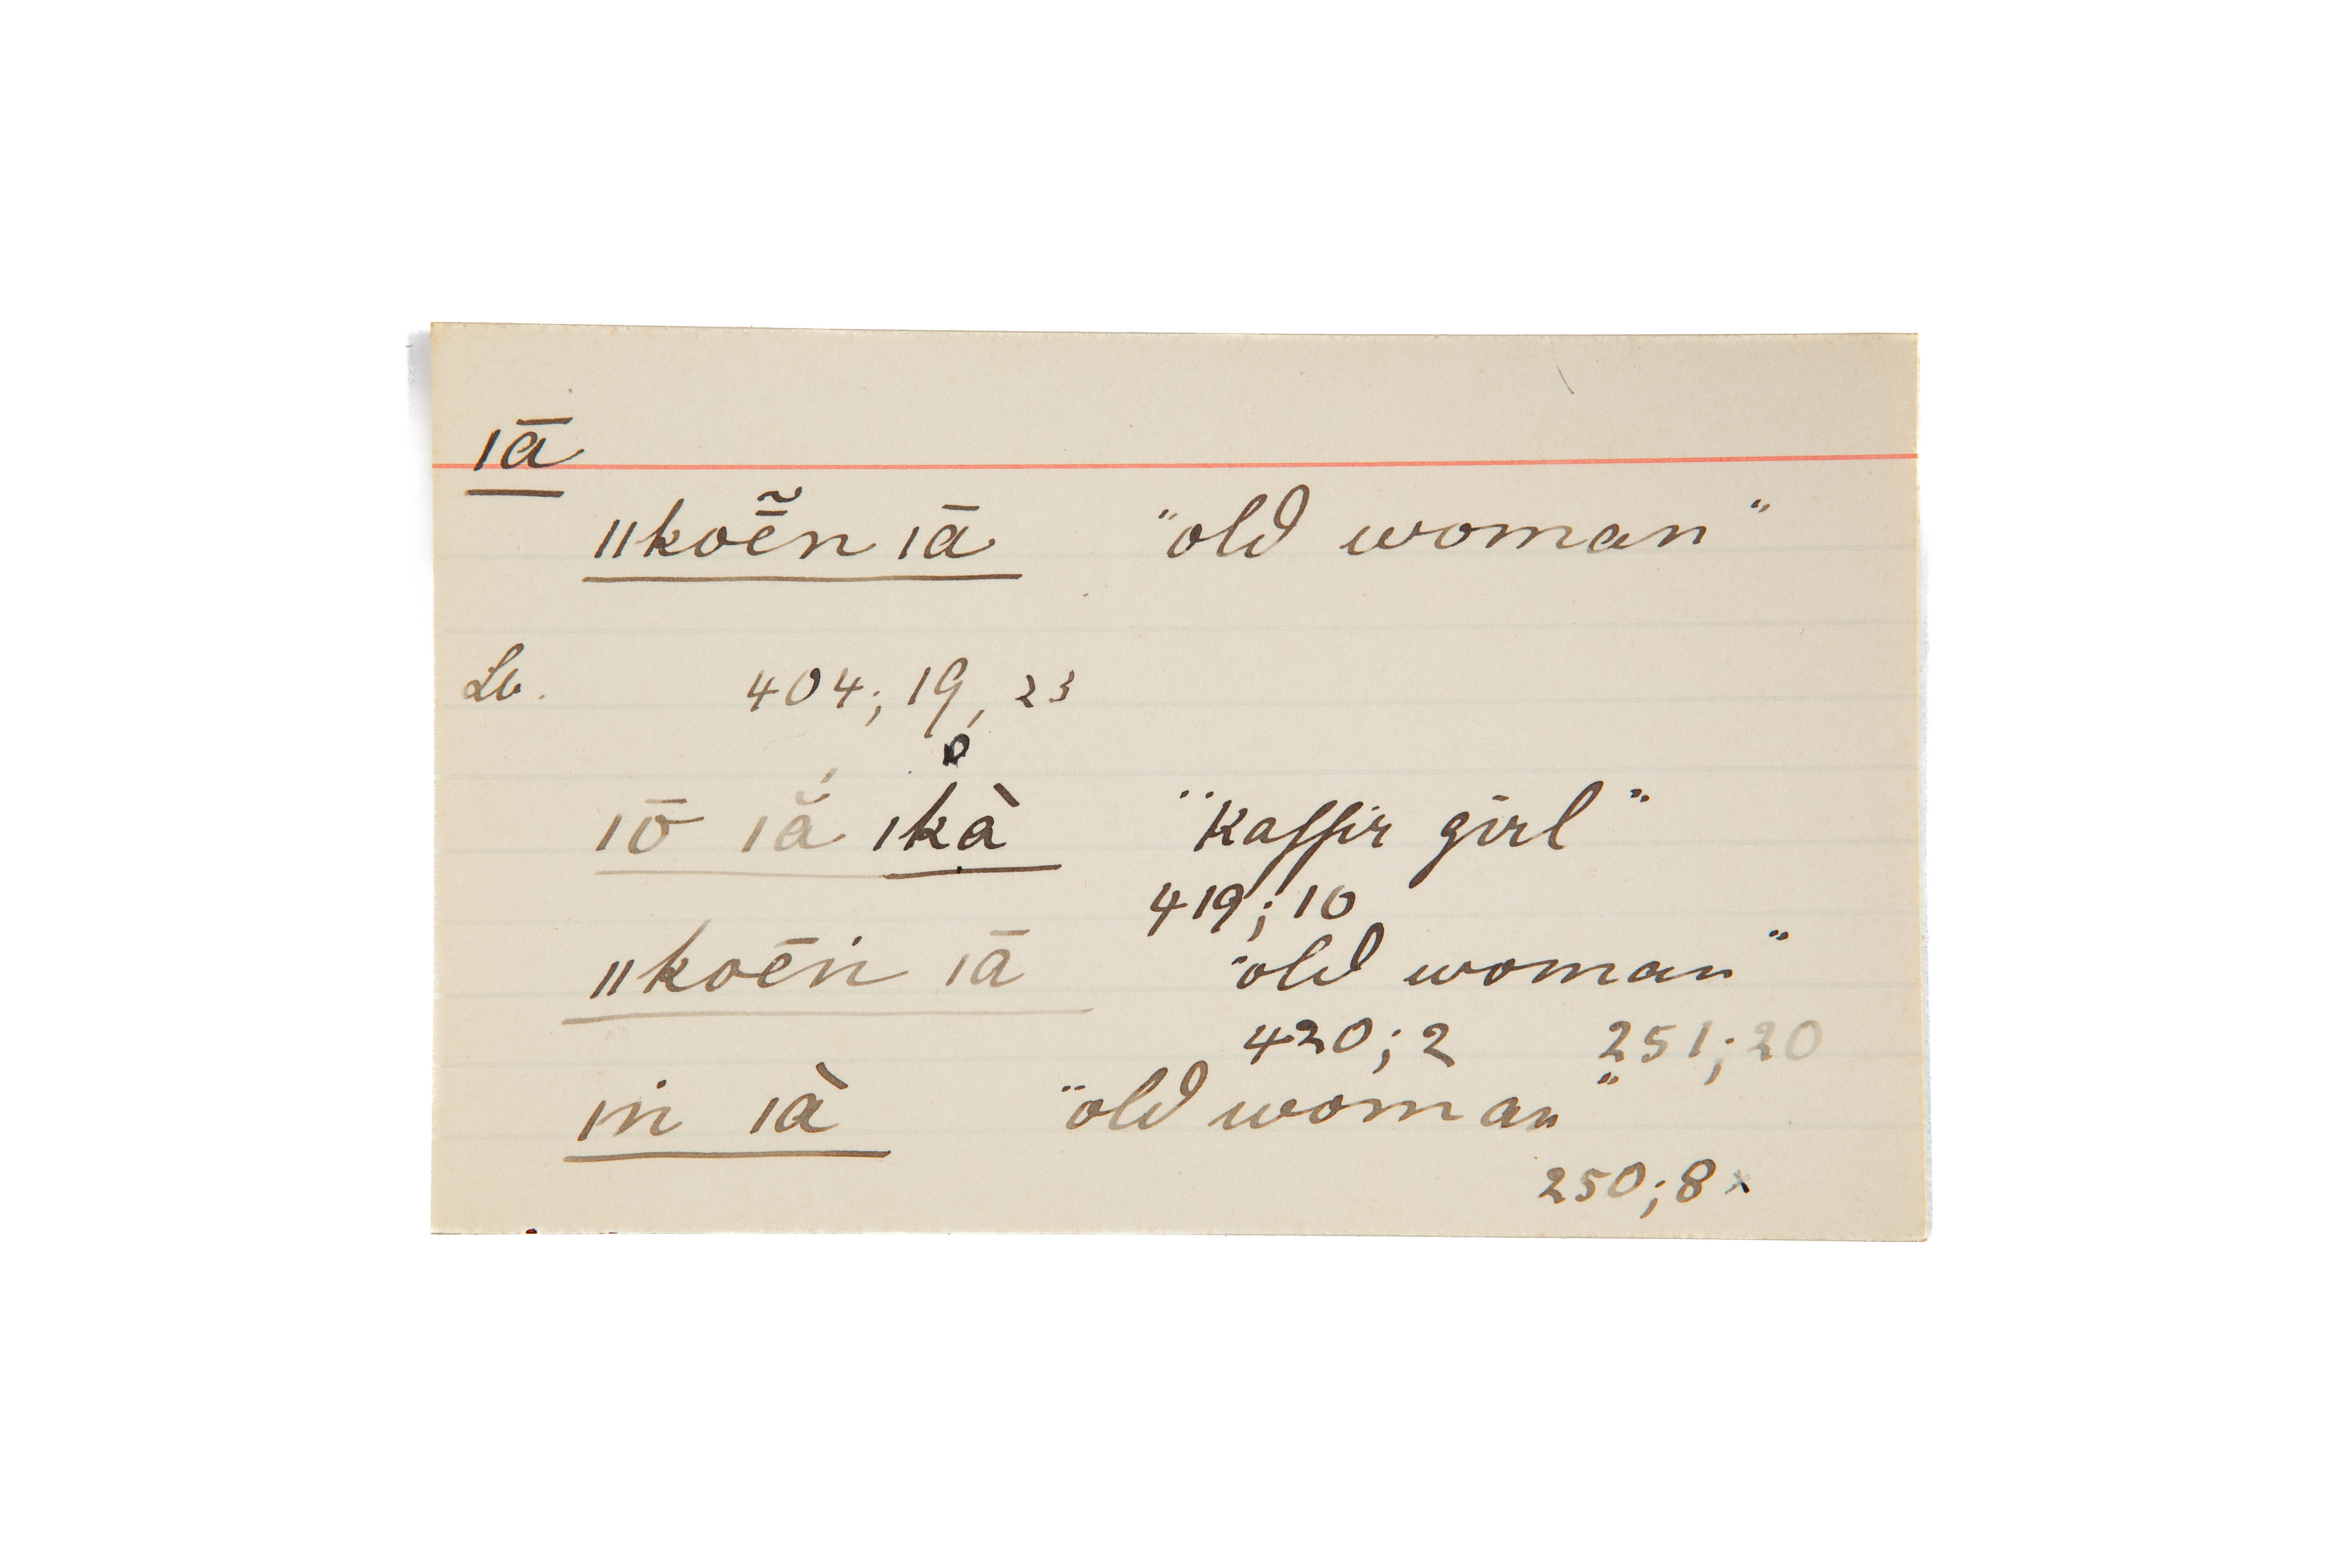 ǀā
ǁkoē̃n ǀā "old woman"
Lb. 404; 19, 23
ǀō ǀā̆́ ǀkà "Kaffir girl"
419; 10
ǁkoēn ǀā "old woman"
420; 2 251; 20
ǀn ǀà "old woman"
250; 8 x